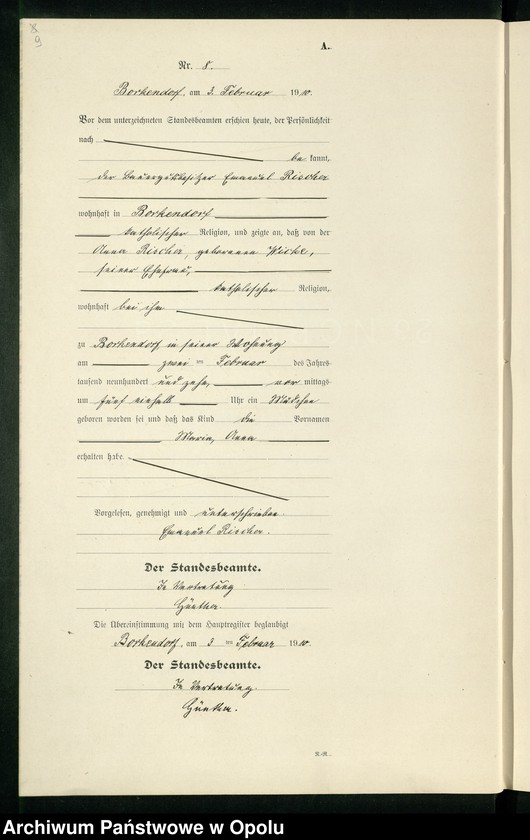 8
9
A.
Nr. 8.
Borkendorf, am 3. Februar 1910.
Vor dem unterzeichneten Standesbeamten erschien heute, der Persönlichkeit
nach be kannt,
der Bauergutsbesitzer Emanuel Rischa
wohnhaft in Borkendorf
katholischer Religion, und zeigte an, daß von der
Anna Rischa, geborenen Wicke,
seiner Ehefrau,
katholischer Religion,
wohnhaft bei ihm
zu Borkendorf in seiner Wohnung
am zwei ten Februar des Jahres
tausend neunhundert und zehn, vor mittags
um fünf einhalb Uhr ein Mädchen
geboren worden sei und daß das Kind die Vornamen
Maria, Anna
erhalten habe.
Vorgelesen, genehmigt und unterschrieben
Emanuel Rischa.
Der Standesbeamte.
In Vertretung
Günther.
Die Übereinstimmung mit dem Hauptregister beglaubigt
Borkendorf, am 3 ten Februar 1910.
Der Standesbeamte.
In Vertretung.
Günther.
Archiwum Państwowe w Opolu